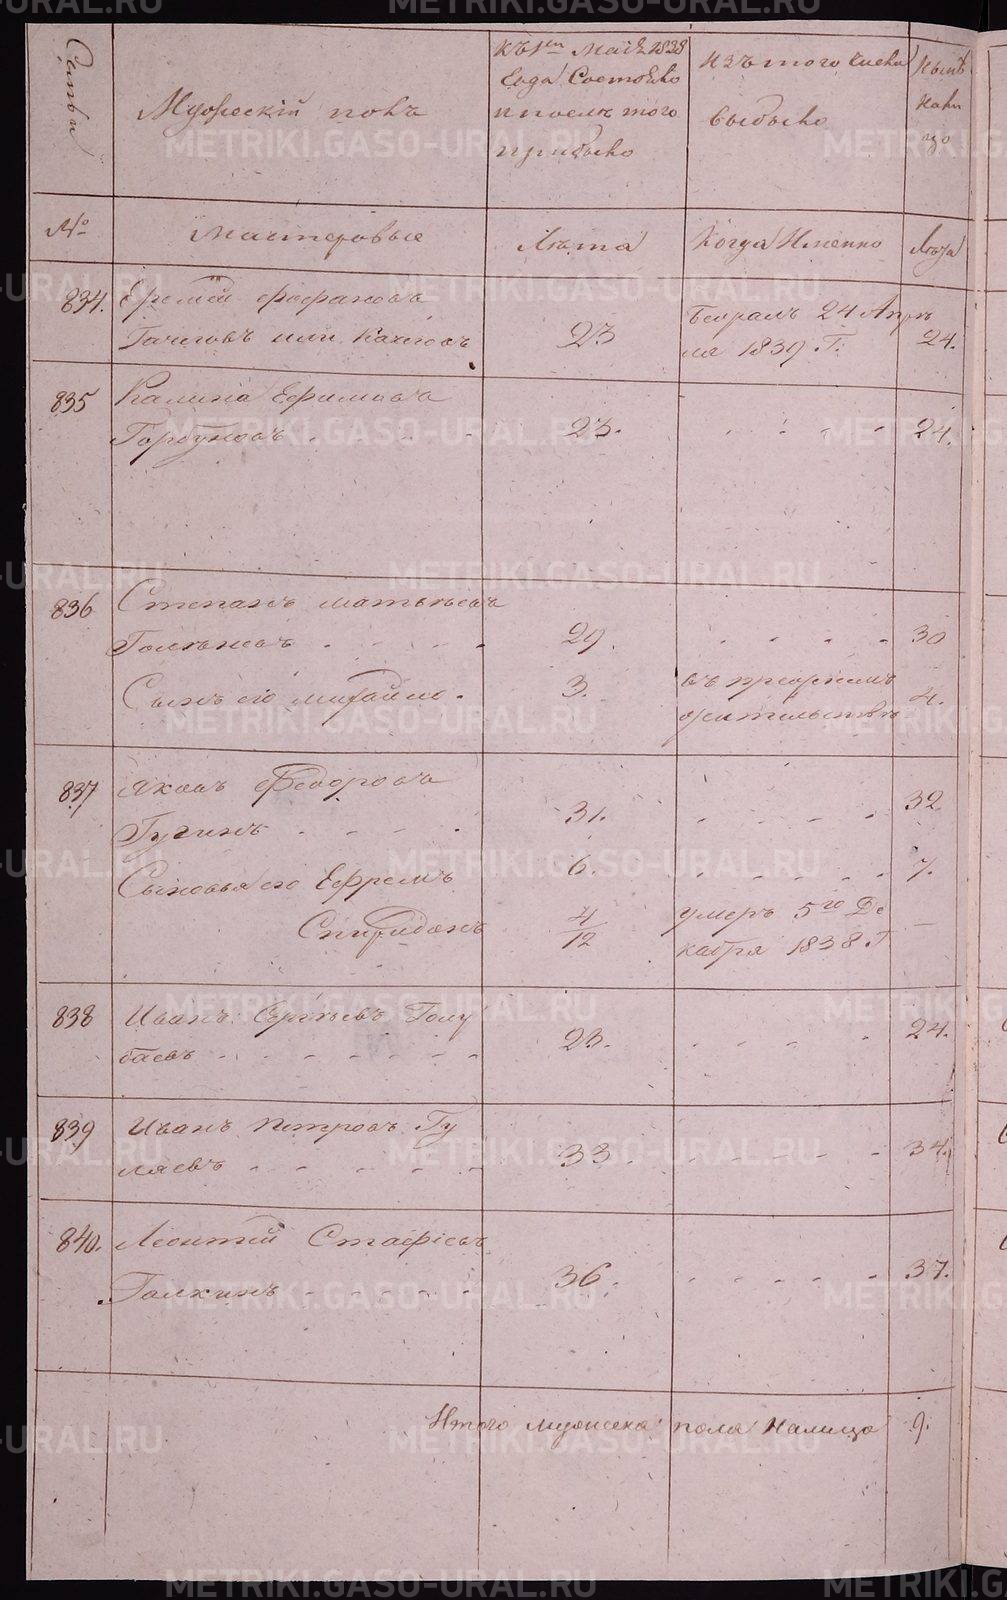 Семьи
Мужескій полъ
Къ 1му Маія 1838
года Состояло
и послѣ того
прибыло
Изъ того числа
выбыло
Нынѣ
нали
цо
№
Мастеровые
Лѣта
Когда Именно
Лѣта
834. Еремей Фофановъ
Гачеговъ или Качеговъ 23 24 Апрѣ 24.
ля 1839 Г.
835 Калина Ефимовъ
Горбуновъ 23. 24.
836 Степанъ Матвѣевъ
29. 30
Сынъ его Михайло. 3. въ прежнемъ 4.
жительствѣ
837 Яковъ Федоровъ
Гугинъ 31. 32
Сыновья его Ефремъ 6. 7.
Спиридонъ 4/12 умеръ 5го Де –
кабря 1838 Г
838 Иванъ Сергѣевъ Голу
баевъ 23. 24.
839 Иванъ Петровъ Гу
ляевъ 33. 34.
840. Леонтей Стафіевъ
Галкинъ 36. 37.
Итого мужеска пола налицо 9.
METRIKI.GASO-URAL.RU